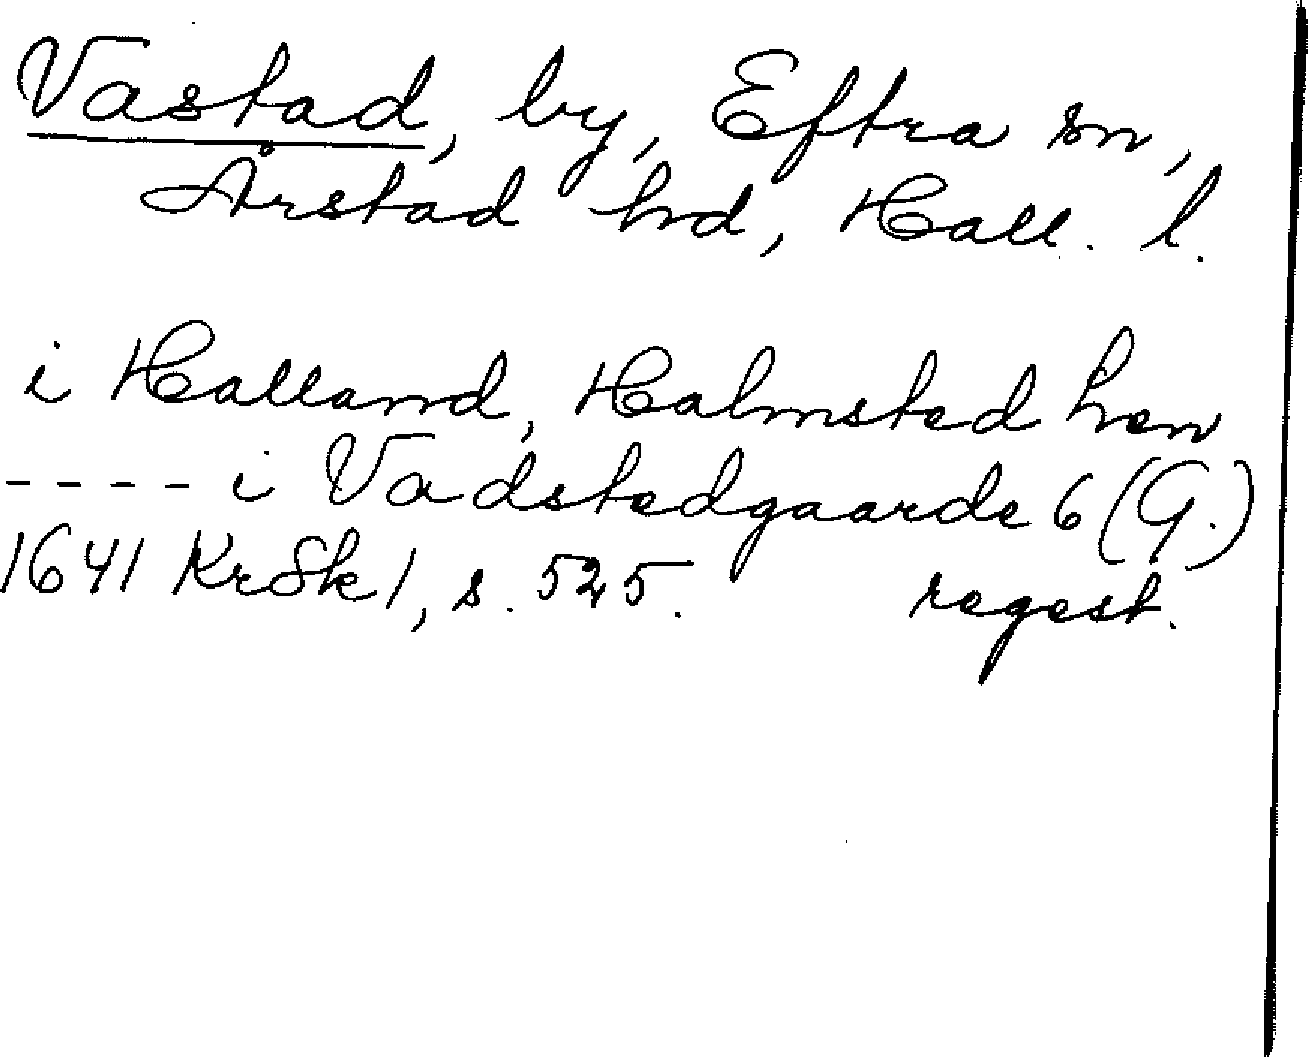 Vastad, by, Eftra sn,
Årstad hd, Hall. l.
i Halland, Halmsted hen
---- i Vadstedgaarde 6 (G.)
1641 KrSk 1, s. 525. regest.